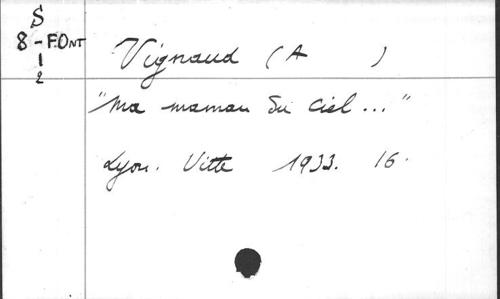 S
8 - F.ONT
1
2
Vignaud (A )
"Ma maman du ciel..."
Lyon. Vitte 1933. 16.